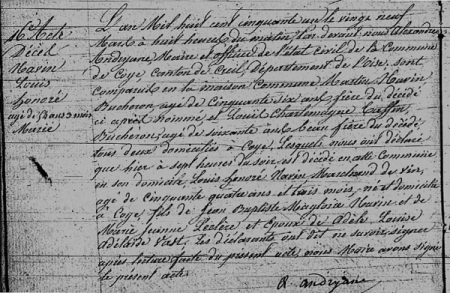 16 Acte
Décès
Navin
Louis
honoré
agé de 54 ans 3 mois
Marié
L'an Mil huit cent cinquante un le vingt neuf
Mars à huit heures du matin, Par devant nous Alexandre
Andryane Maire et officier de l'état civil de la Commune
de Coye, Canton de Creil, département de l'Oise, sont
comparus en la maison Commune Martin Navin
Bucheron, agé de Cinquante six ans frère du décédé
ci après nommé, et Louis Charlemagne
Bucheron, agé de soixante ans beau frère du décédé
tous deux domiciliés à Coye, Lesquels nous ont déclaré
que hier à sept heures du soir est décédé en cette Commune
en son domicile, Louis honoré Navin Marchand de vin,
agé de Cinquante quatre ans et trois mois, né et domicilié
à Coye, fils de Jean Baptiste Magloire Navin et de
Marie Jeanne Leclère et Epoux de Adèle Louise
adélaïde Vast, les déclarants ont dit ne savoir signer
après lecture faite du présent acte, nous Maire avons signé
le présent acte.
A. andryane